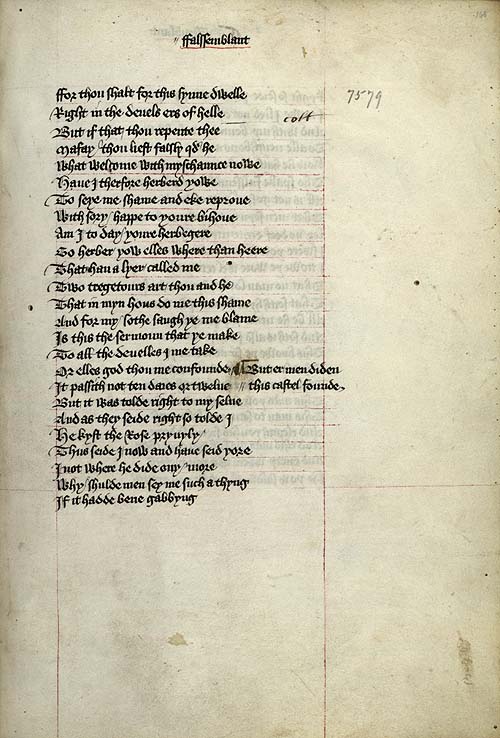 ffalssemblant
ffor thou shalt for this synne dwelle
7579
Right in the deuels ers of helle
colt
But if that thou repente thee
Mafay thou liest falsly qd he
What welcome with myschaunce nowe
Haue I therfore herberd yowe
To seye me shame and eke reproue
With sory happe to youre bihoue
Am I to day youre herbegere
Go herber yow elles where than heere
That han a lyer called me
Two tregetours art thou and he
That in myn hous do me this shame
And for my sothe saugh ye me blame
Is this the sermoun that ye make
To all the deuelles I me take
Or elles god thou me confounde
But er men diden
It passith not ten daies or twelue
this castel founde
But it was tolde right to my selue
And as they seide right so tolde I
He kyst the Rose pryuyly
Thus seide I now and haue seid yore
I not where he dide ony more
Why shulde men sey me such a thyng
If it hadde bene gabbyng